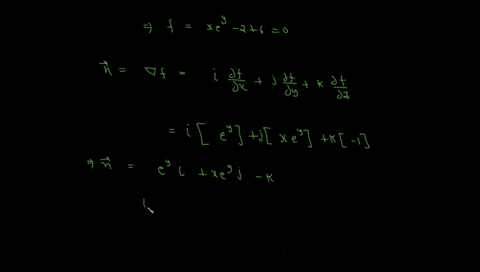 ⇒ f = xe^y - z + 6 = 0
n⃗ = ∇f = i ∂f/∂x + j ∂f/∂y + k ∂f/∂z
= i[ e^y ] + j[ xe^y ] + k[-1]
⇒ n⃗ = e^y i + xe^y j - k